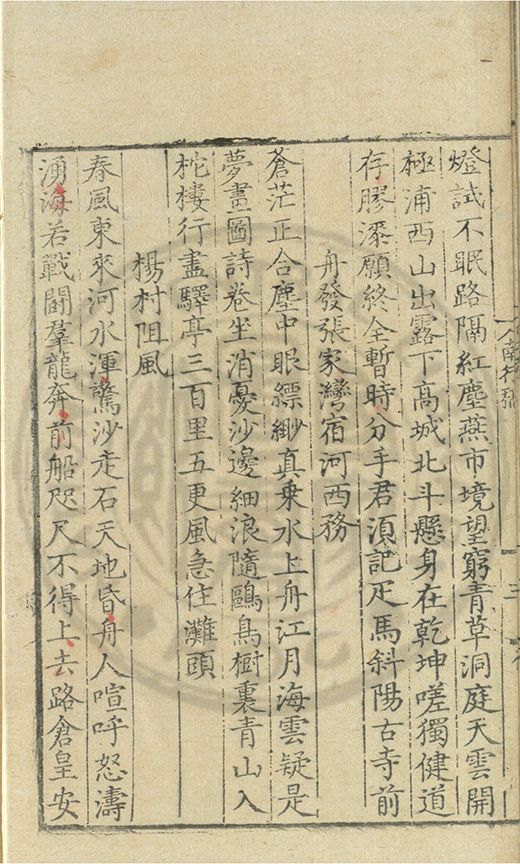 燈試不眠路隔紅塵燕市境望窮青草洞庭天雲開
極浦西山出露下高城北斗懸身在乾坤嗟獨健道
存膠漆願終全暫時分手君須記疋馬斜陽古寺前
舟發張家灣宿河西務
蒼茫正合塵中眼縹緲真乗水上舟江月海雲疑是
夢畫圖詩卷坐消憂沙邊細浪隨鷗鳥樹裏青山入
柁樓行盡驛亭三百里五更風急住灘頭
楊村阻風
春風東來河水渾驚沙走石天地昏舟人喧呼怒濤
湧海若戰鬭羣龍奔前船咫尺不得上去路倉皇安